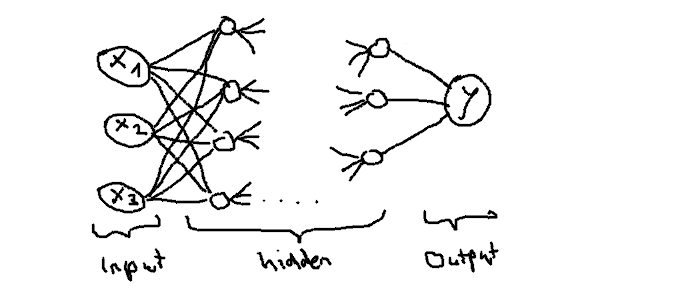 x1
x2
x3
y
Input
hidden
Output